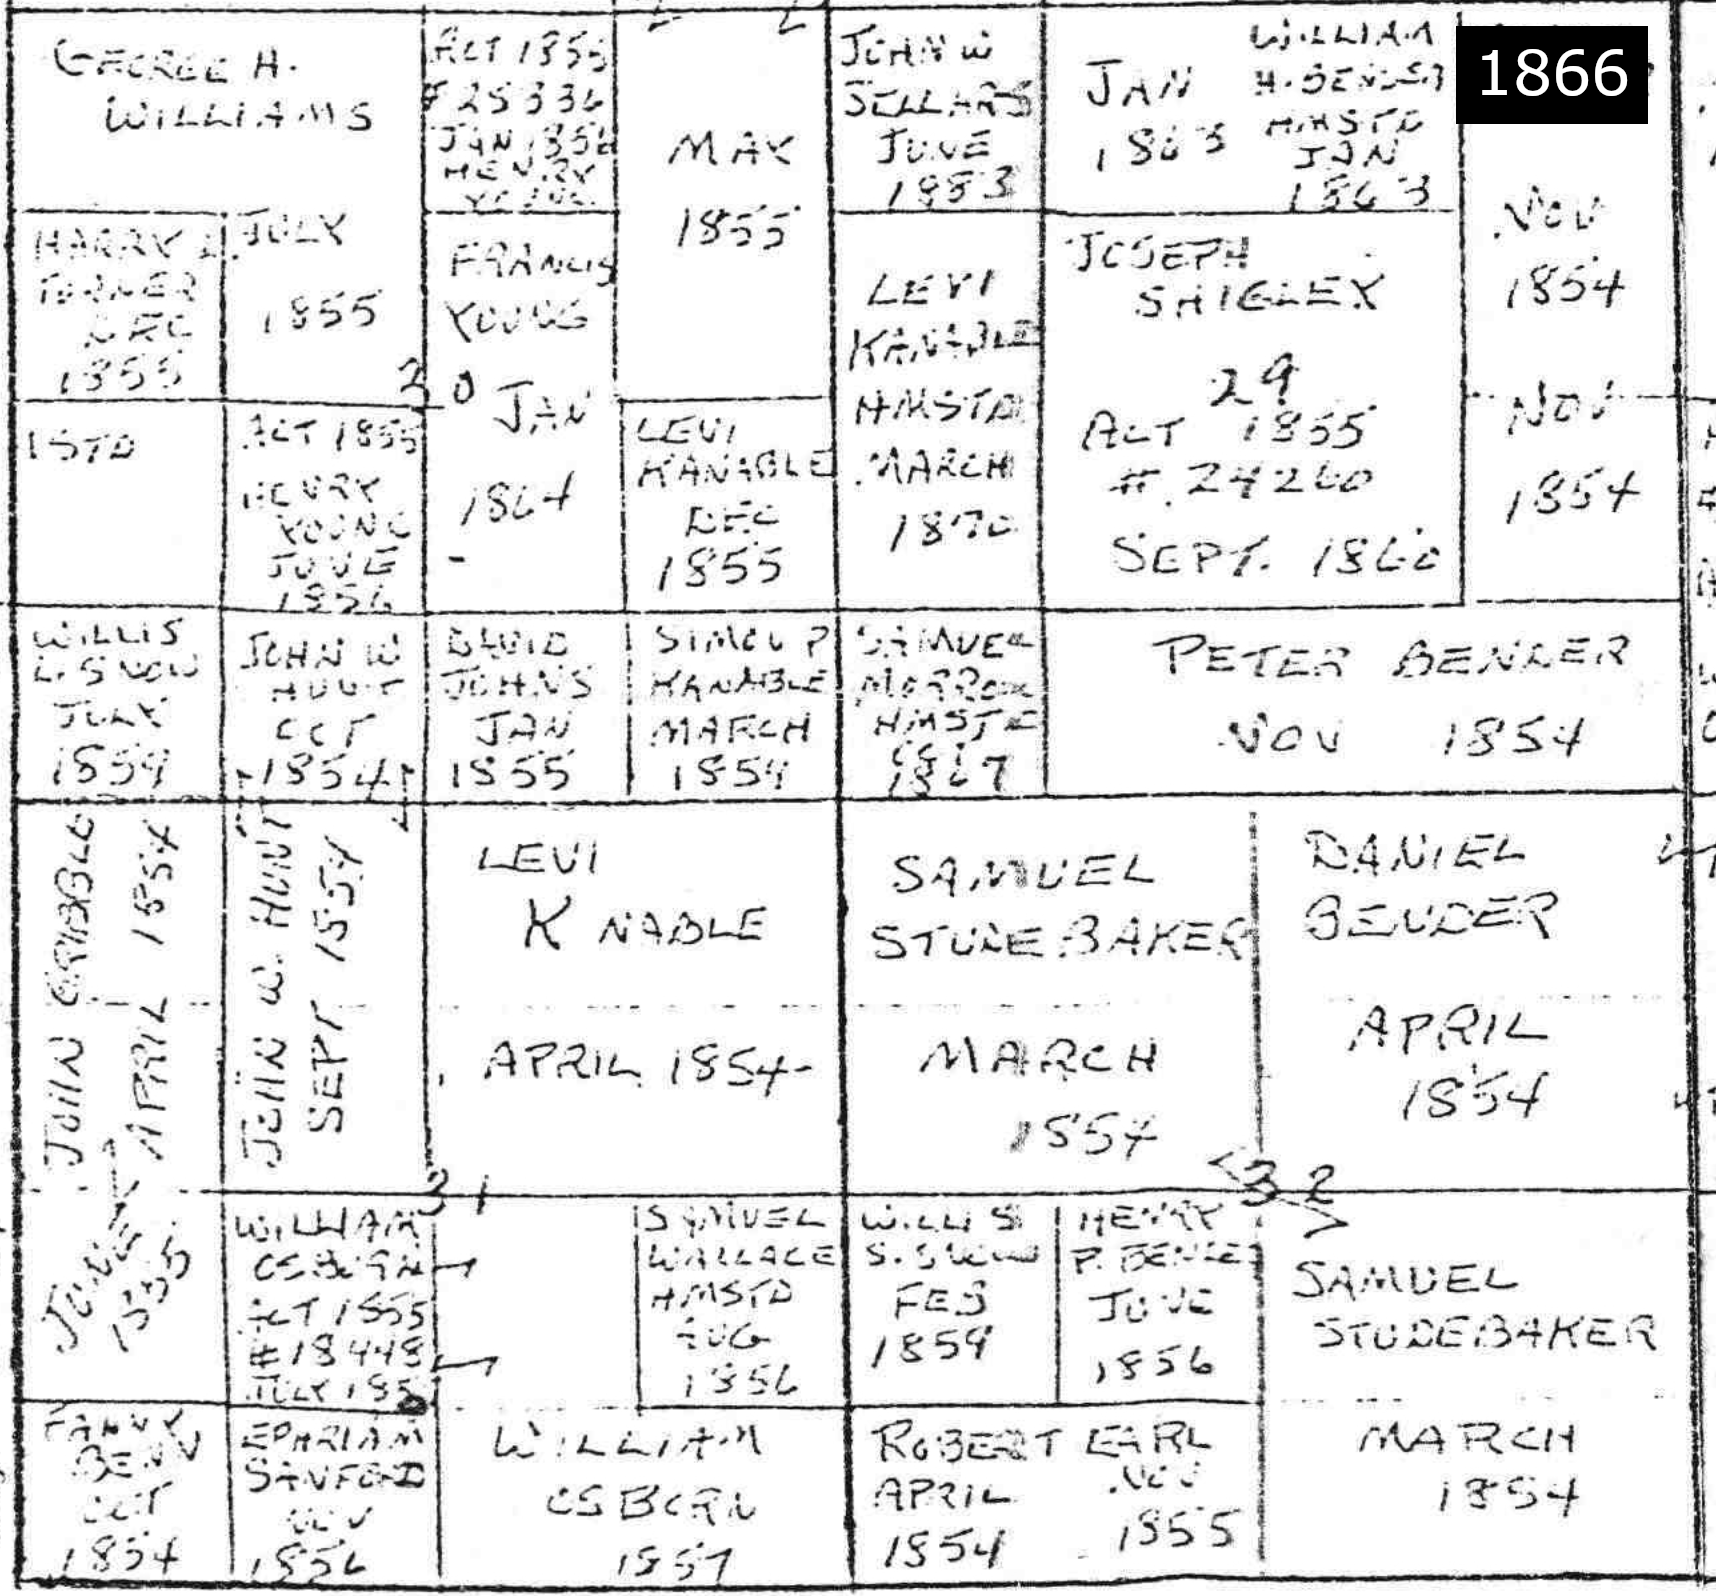 GEORGE H.
WILLIAMS
JULY
1855
ACT 1855
# 25336
JAN 1856
HENRY
YOUNG
MAY
1855
JOHN W
SELLARS
JUNE
1883
JAN
1863
WILLIAM
H. BENDER
HMSTD
JAN
1863
1866
NOV
1854
HARRY L.
TURNER
DEC
1855
FRANCIS
YOUNG
JAN
1864
20
LEVI
KANABLE
HMSTD
MARCH
1870
JOSEPH
SHIGLEY
29
ACT 1855
#. 24260
SEPT. 1860
NOV
1854
ISTD
ACT 1855
HENRY
YOUNG
JUNE
1856
LEVI
KANABLE
DEC
1855
WILLIS
S. SNOW
JULY
1859
JOHN W
HUNT
OCT
1854
DAVID
JOHNS
JAN
1855
SIMON P
KANABLE
MARCH
1854
SAMUEL
MORROW
HMSTD
1867
PETER BENDER
NOV 1854
JOHN GRIBBLE
APRIL 1854
JOHN W. HUNT
SEPT 1854
LEVI
K NABLE
APRIL 1854
SAMUEL
STUDEBAKER
MARCH
1854
DANIEL
BENDER
APRIL
1854
31
32
JUNE
1855
WILLIAM
OSBORN
ACT 1855
# 18448
JULY
SAMUEL
WALLACE
HMSTD
AUG
1856
WILLIS
S. SNOW
FEB
1859
HENRY
P. BENDER
JUNE
1856
SAMUEL
STUDEBAKER
MARCH
1854
FANNY
BENN
OCT
1854
EPHRIAM
SANFORD
NOV
1856
WILLIAM
OSBORN
1857
ROBERT EARL
APRIL
1854
NOV
1855